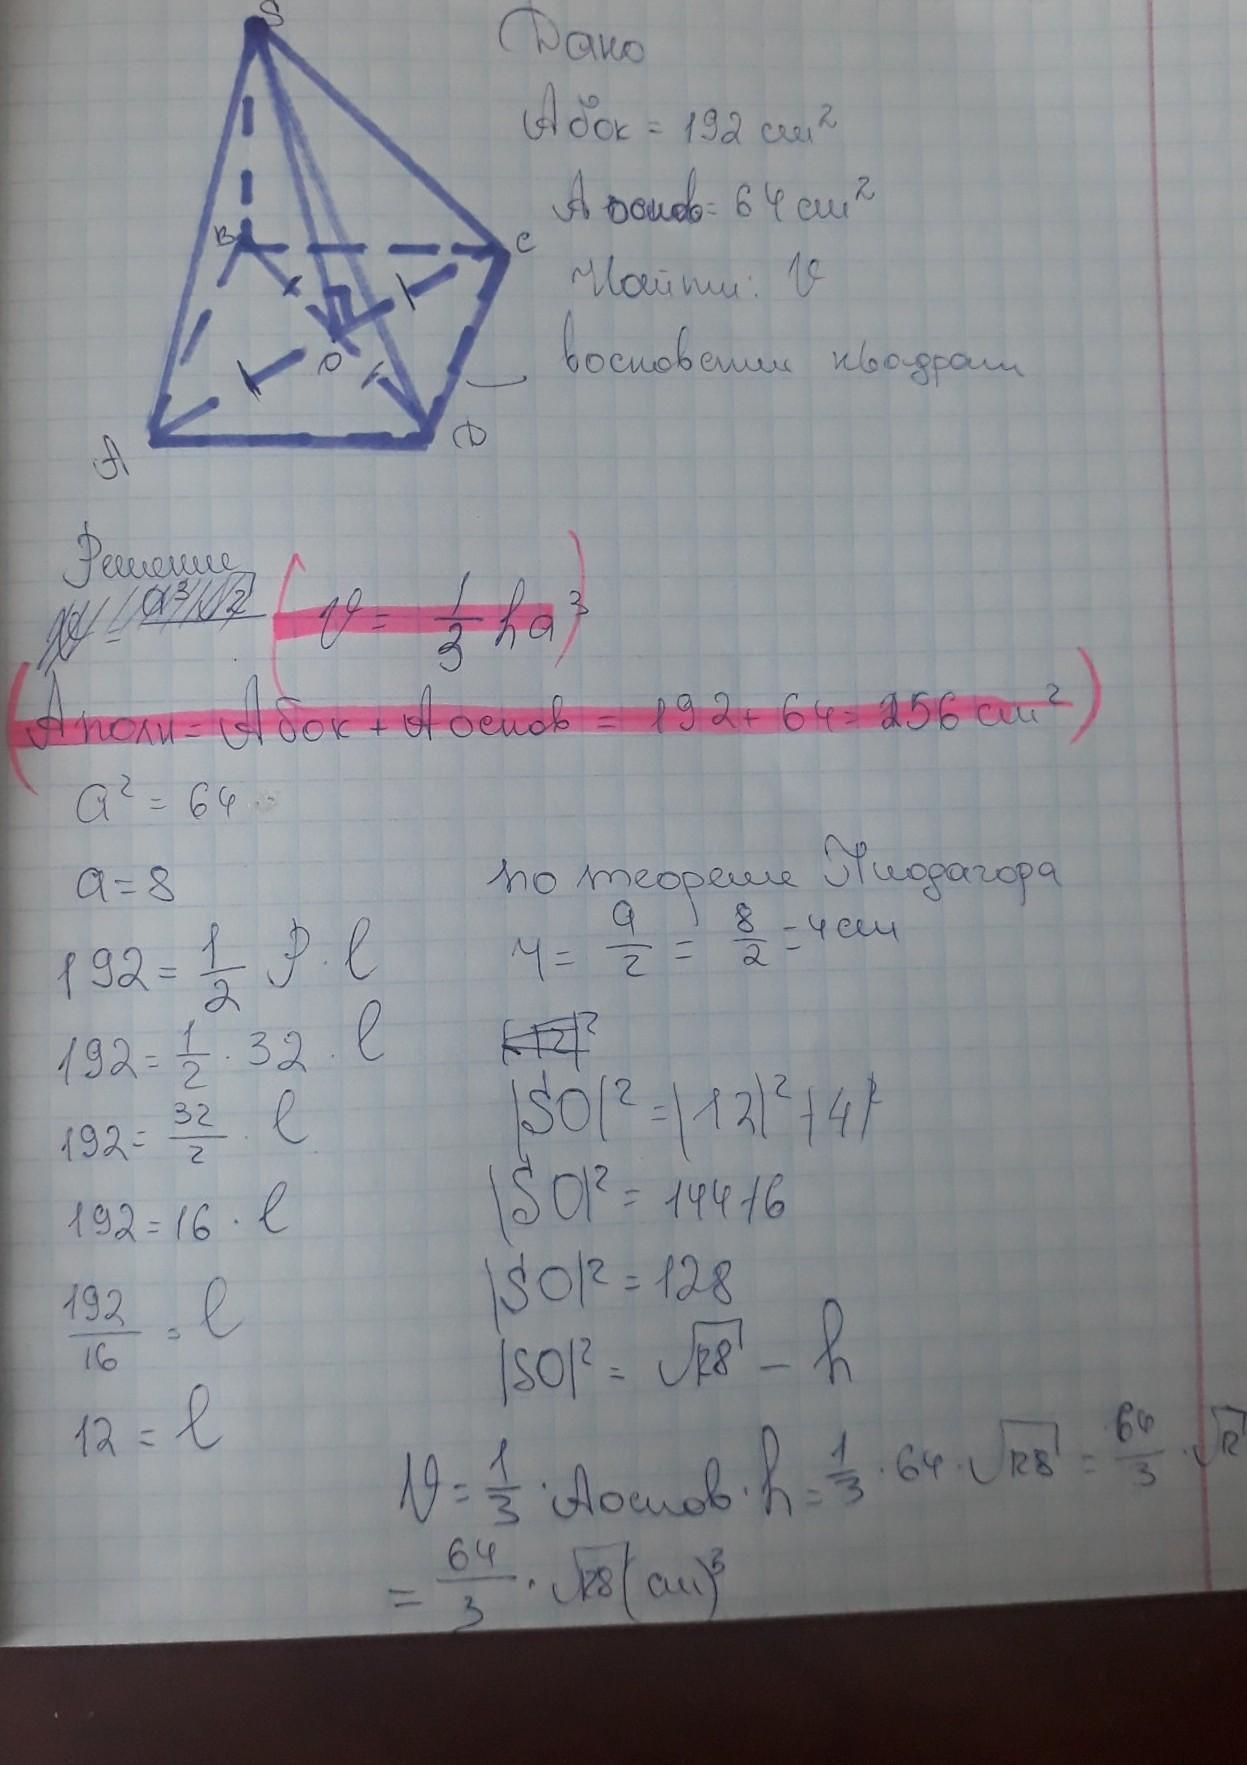 S
Дано
Aбок = 192 см²
Aоснов = 64 см²
Найти: V
восновении квадрат
B
C
O
A
D
Решение
V = 1/3 ha³
Aполн = Aбок + Aоснов = 192 + 64 = 256 см²
a² = 64
a = 8
192 = 1/2 P · l
192 = 1/2 · 32 · l
192 = 32/2 · l
192 = 16 · l
192/16 = l
12 = l
по теореме Пиодагора
r = a/2 = 8/2 = 4 см
|SO|² = |12|² - |4|²
|SO|² = 144 - 16
|SO|² = 128
|SO|² = √128 - h
V = 1/3 · Aоснов · h = 1/3 · 64 · √128 = 64/3 ·
= 64/3 · √128 (см)³